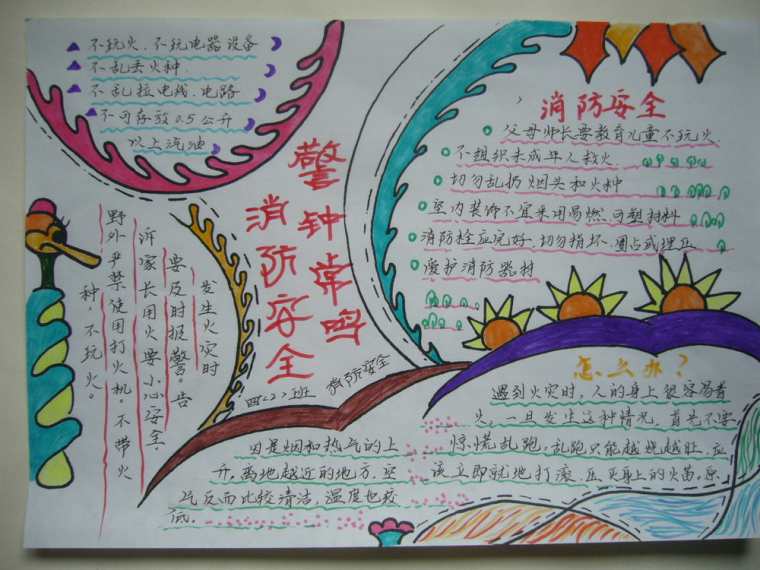 不玩火、不玩电器设备
不乱丢火种、
不乱拉电线、电路
不可存放0.5公升
以上汽油
消防安全
父母师长要教育儿童不玩火
不组织未成年人救火
切勿乱扔烟头和火种
室内装饰不宜采用易燃、可塑材料
消防栓应完好,切勿损坏、圈占或埋压
爱护消防器材
警钟常鸣
消防安全
发生火灾时
要及时报警。告
诉家长用火要小心安全.
野外严禁使用打火机。不带火
种,不玩火。
四<2>班
消防安全
怎么办?
遇到火灾时,人的身上很容易着
火。一旦发生这种情况,首先不要
惊慌乱跑。乱跑只能越烧越旺、应
该立即就地打滚、压灭身上的火苗。
因是烟和热气的上
升。离地越近的地方、空
气反而比较清洁,温度也较
低。